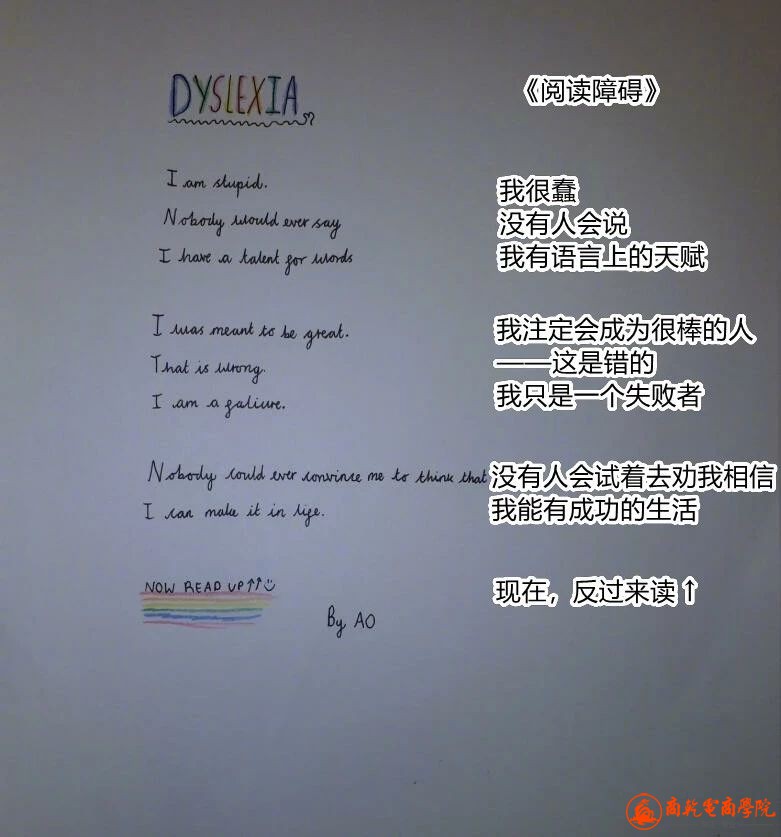 DYSLEXIA
《阅读障碍》
I am stupid.
Nobody would ever say
I have a talent for words
我很蠢
没有人会说
我有语言上的天赋
I was meant to be great.
That is wrong.
I am a faliure.
我注定会成为很棒的人
——这是错的
我只是一个失败者
Nobody could ever convince me to think that
I can make it in life.
没有人会试着去劝我相信
我能有成功的生活
NOW READ UP↑↑☺
现在，反过来读↑
By AO
商乾电商学院